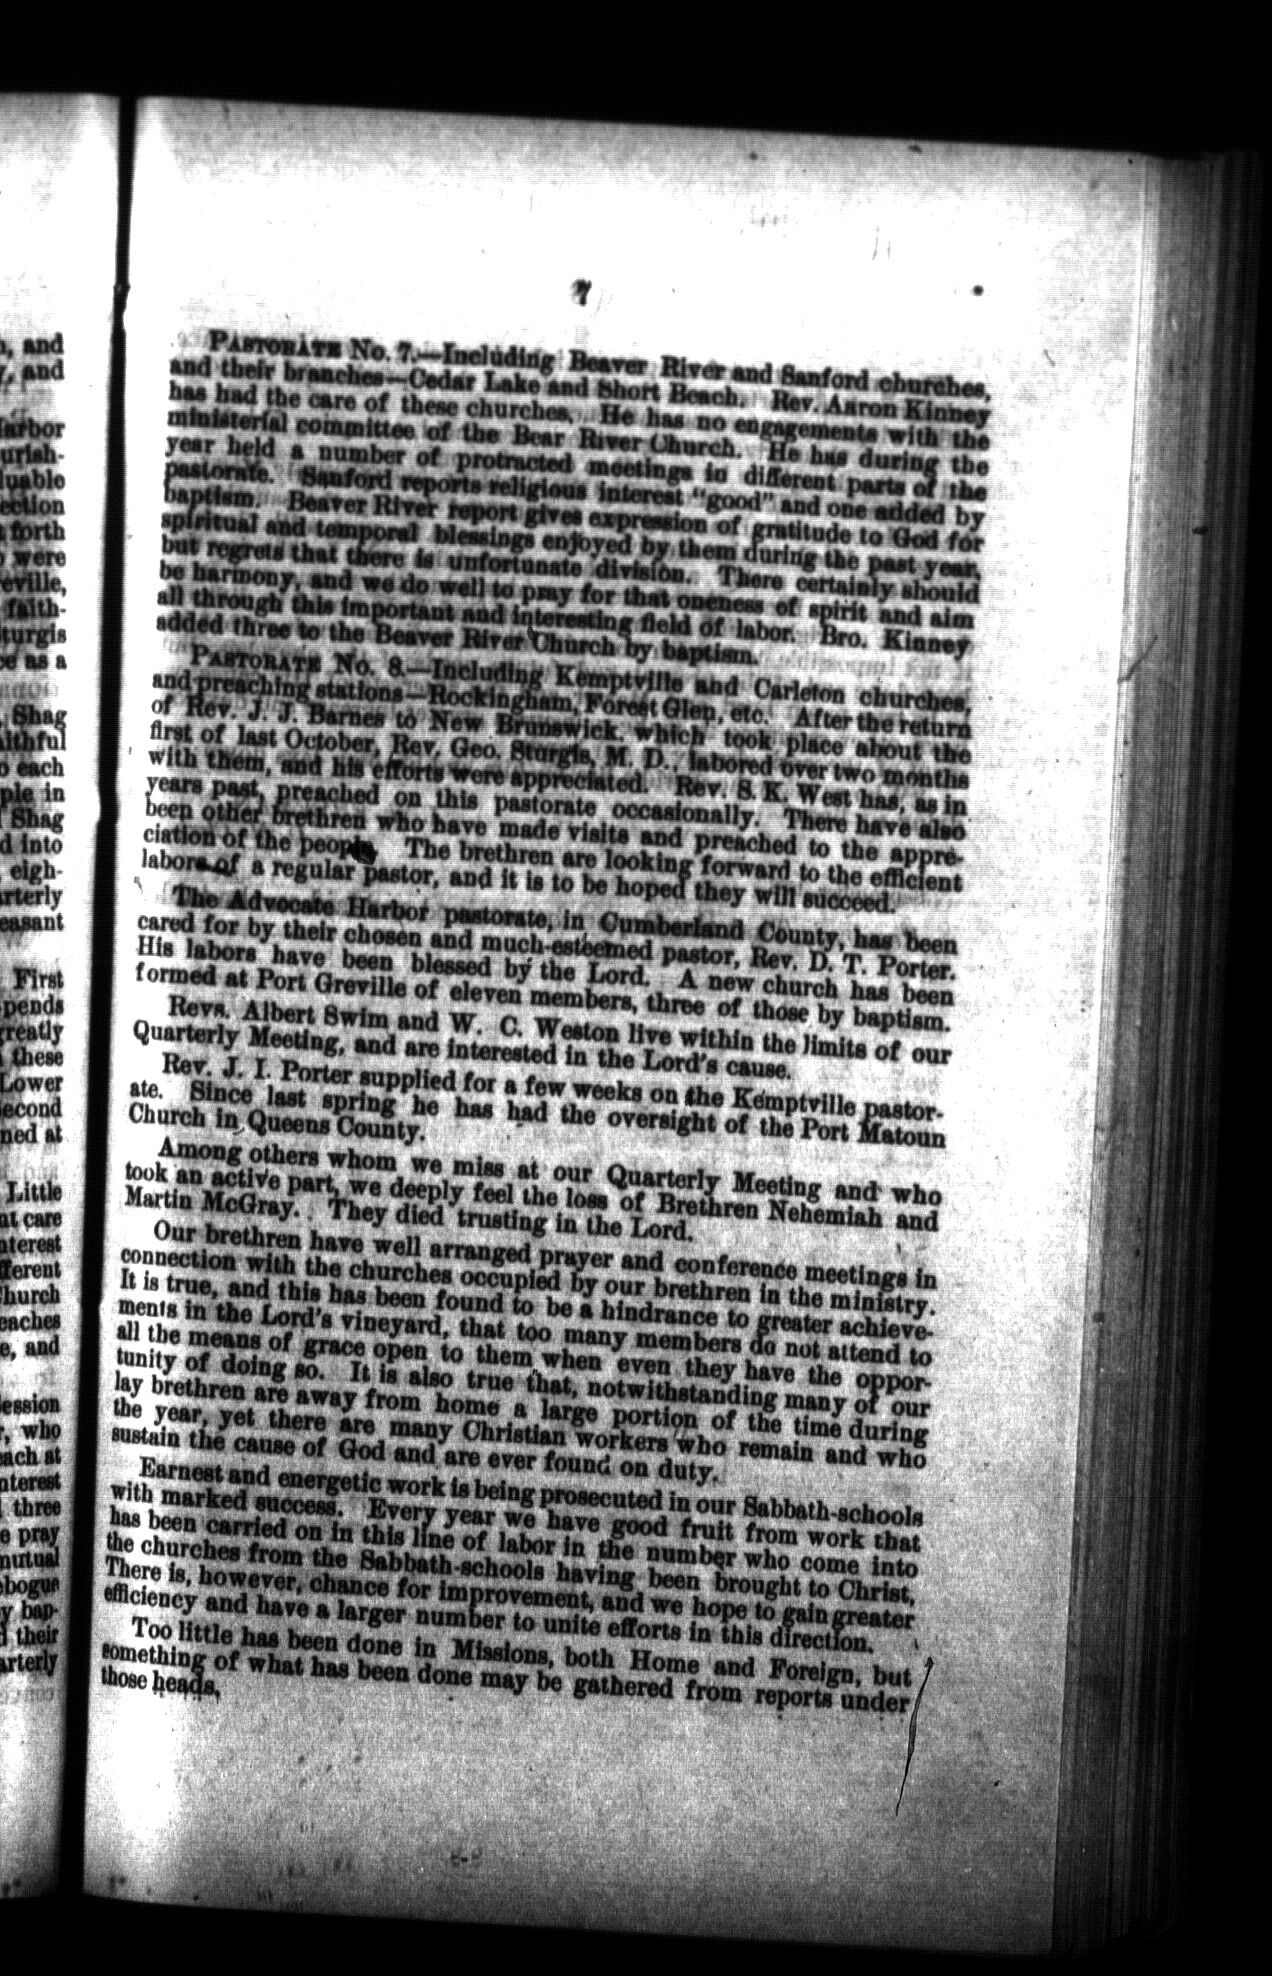 7
PASTORATE No. 7.—Including Beaver River and Sanford churches,
and their branches—Cedar Lake and Short Beach. Rev. Aaron Kinney
has had the care of these churches. He has no engagements with the
ministerial committee of the Bear River Church. He has during the
year held a number of protracted meetings in different parts of the
pastorate. Sanford reports religious interest "good" and one added by
baptism. Beaver River report gives expression of gratitude to God for
spiritual and temporal blessings enjoyed by them during the past year,
but regrets that there is unfortunate division. There certainly should
be harmony, and we do well to pray for that oneness of spirit and aim
all through this important and interesting field of labor. Bro. Kinney
added three to the Beaver River Church by baptism.
PASTORATE No. 8.—Including Kemptville and Carleton churches,
and preaching stations—Rockingham, Forest Glen, etc. After the return
of Rev. J. J. Barnes to New Brunswick, which took place about the
first of last October, Rev. Geo. Sturgis, M. D., labored over two months
with them, and his efforts were appreciated. Rev. S. K. West has, as in
years past, preached on this pastorate occasionally. There have also
been other brethren who have made visits and preached to the appre-
ciation of the people. The brethren are looking forward to the efficient
labors of a regular pastor, and it is to be hoped they will succeed.
The Advocate Harbor pastorate, in Cumberland County, has been
cared for by their chosen and much-esteemed pastor, Rev. D. T. Porter.
His labors have been blessed by the Lord. A new church has been
formed at Port Greville of eleven members, three of those by baptism.
Revs. Albert Swim and W. C. Weston live within the limits of our
Quarterly Meeting, and are interested in the Lord's cause.
Rev. J. I. Porter supplied for a few weeks on the Kemptville pastor-
ate. Since last spring he has had the oversight of the Port Matoun
Church in Queens County.
Among others whom we miss at our Quarterly Meeting and who
took an active part, we deeply feel the loss of Brethren Nehemiah and
Martin McGray. They died trusting in the Lord.
Our brethren have well arranged prayer and conference meetings in
connection with the churches occupied by our brethren in the ministry.
It is true, and this has been found to be a hindrance to greater achieve-
ments in the Lord's vineyard, that too many members do not attend to
all the means of grace open to them when even they have the oppor-
tunity of doing so. It is also true that, notwithstanding many of our
lay brethren are away from home a large portion of the time during
the year, yet there are many Christian workers who remain and who
sustain the cause of God and are ever found on duty.
Earnest and energetic work is being prosecuted in our Sabbath-schools
with marked success. Every year we have good fruit from work that
has been carried on in this line of labor in the number who come into
the churches from the Sabbath-schools having been brought to Christ,
There is, however, chance for improvement, and we hope to gain greater
efficiency and have a larger number to unite efforts in this direction.
Too little has been done in Missions, both Home and Foreign, but
something of what has been done may be gathered from reports under
those heads,